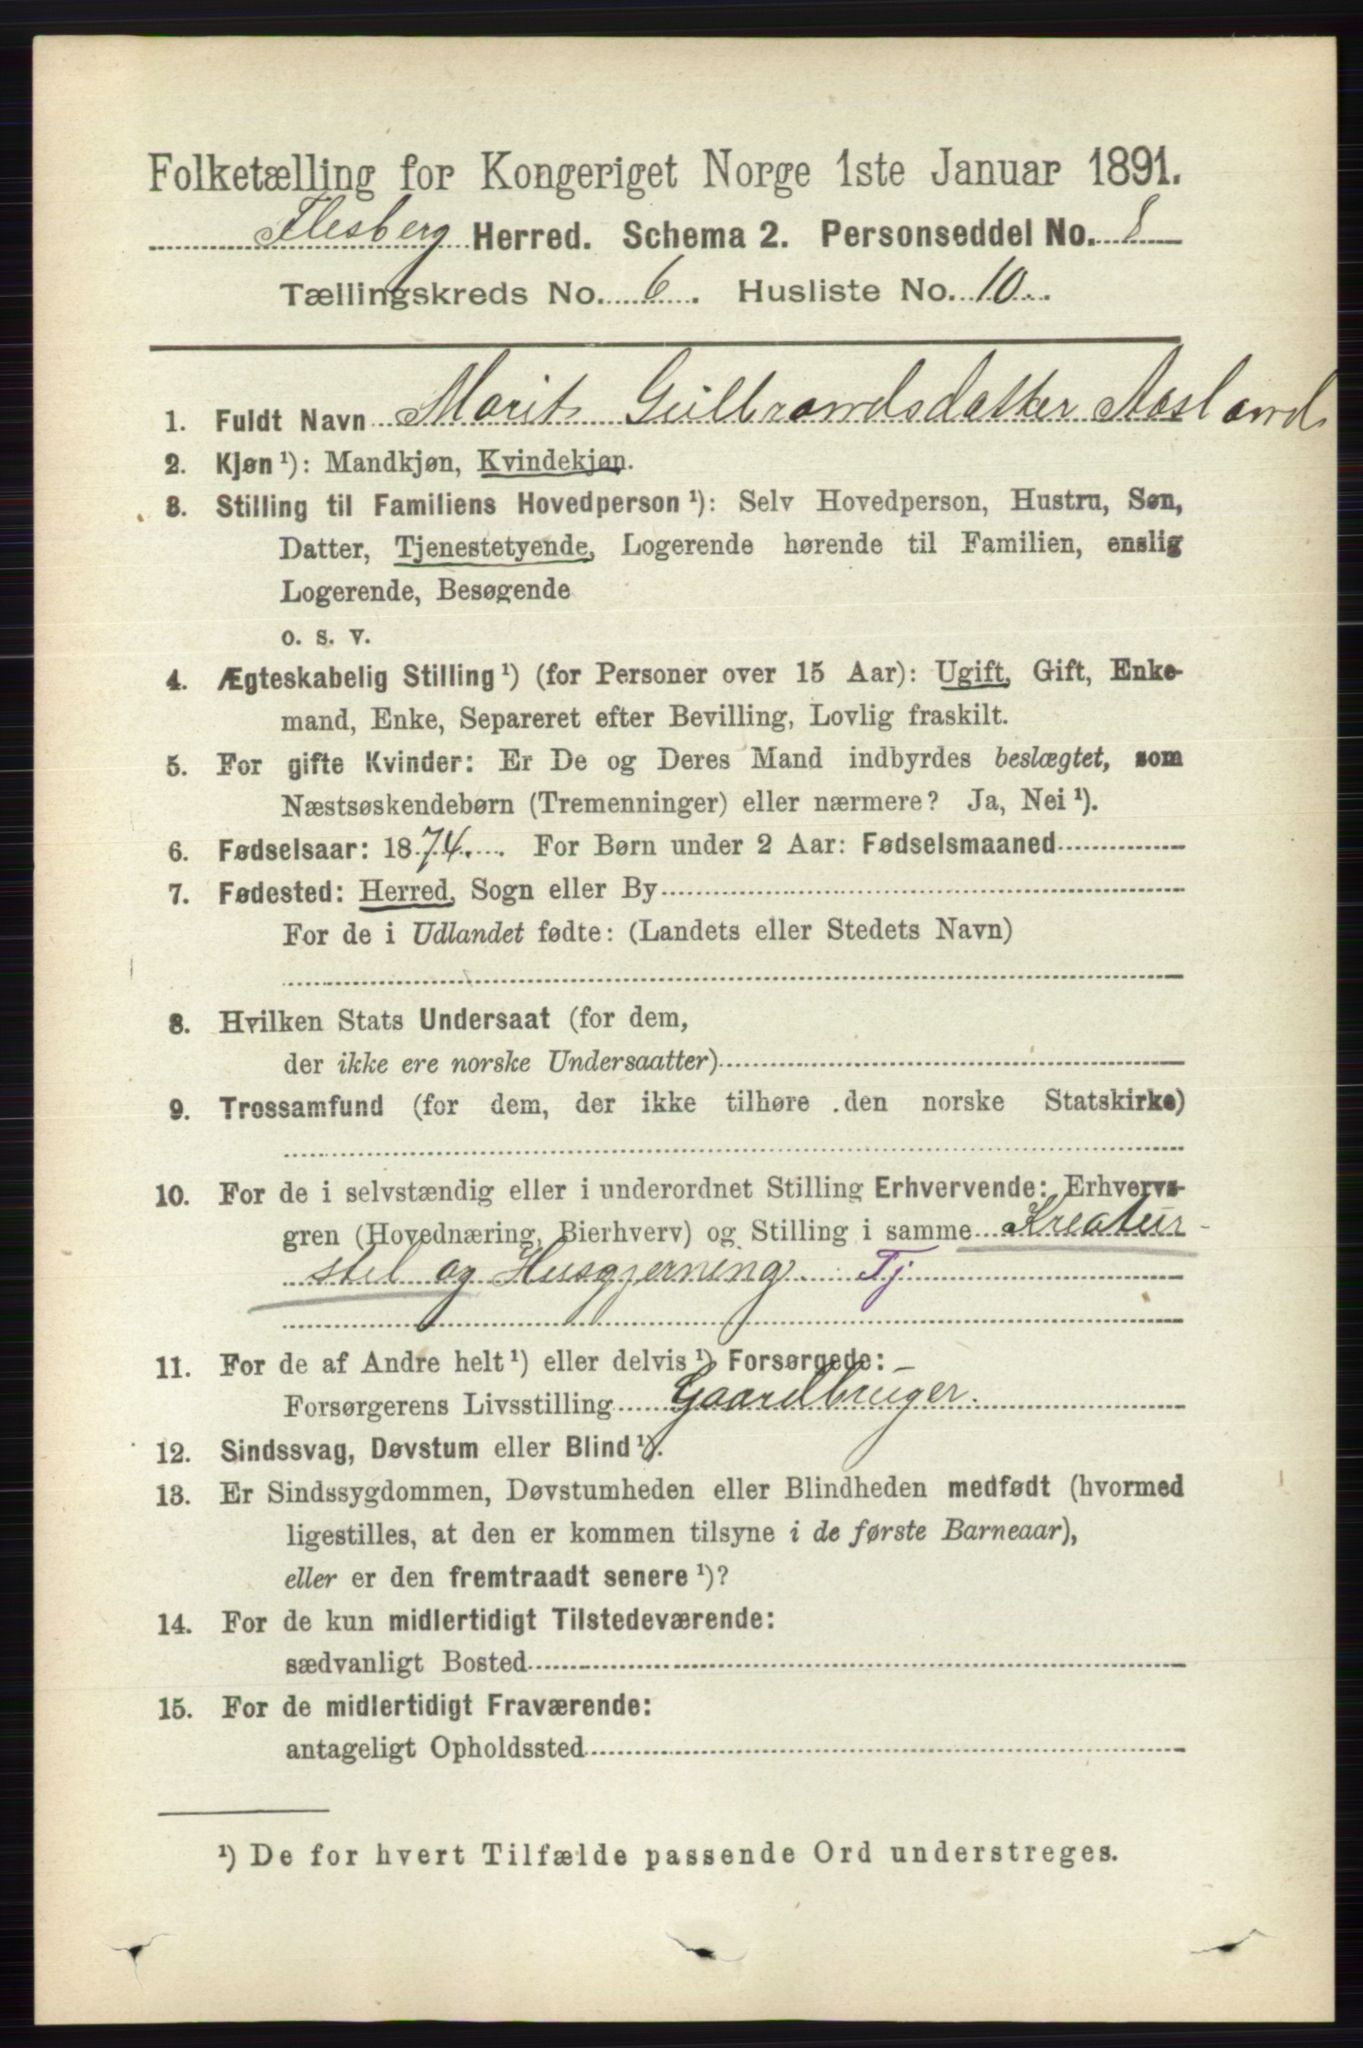 Folketælling for Kongeriget Norge 1ste Januar 1891.
Flesberg Herred. Schema 2. Personseddel No. 8
Tællingskreds No. 6. Husliste No. 10.
1. Fuldt Navn Marit Gulbrandsdatter Aasland
2. Kjøn ¹): Mandkjøn, Kvindekjøn.
3. Stilling til Familiens Hovedperson ¹): Selv Hovedperson, Hustru, Søn,
Datter, Tjenestetyende, Logerende hørende til Familien, enslig
Logerende, Besøgende
o. s. v.
4. Ægteskabelig Stilling ¹) (for Personer over 15 Aar): Ugift, Gift, Enke-
mand, Enke, Separeret efter Bevilling, Lovlig fraskilt.
5. For gifte Kvinder: Er De og Deres Mand indbyrdes beslægtet, som
Næstsøskendebørn (Tremenninger) eller nærmere? Ja, Nei ¹).
6. Fødselsaar: 1874. For Børn under 2 Aar: Fødselsmaaned
7. Fødested: Herred, Sogn eller By
For de i Udlandet fødte: (Landets eller Stedets Navn)
8. Hvilken Stats Undersaat (for dem,
der ikke ere norske Undersaatter)
9. Trossamfund (for dem, der ikke tilhøre den norske Statskirke)
10. For de i selvstændig eller i underordnet Stilling Erhvervende: Erhvervs-
gren (Hovednæring, Bierhverv) og Stilling i samme Kreatur-
stel og Husgjerning. Tj
11. For de af Andre helt ¹) eller delvis ¹) Forsørgede:
Forsørgerens Livsstilling Gaardbruger.
12. Sindssvag, Døvstum eller Blind ¹).
13. Er Sindssygdommen, Døvstumheden eller Blindheden medfødt (hvormed
ligestilles, at den er kommen tilsyne i de første Barneaar),
eller er den fremtraadt senere ¹)?
14. For de kun midlertidigt Tilstedeværende:
sædvanligt Bosted
15. For de midlertidigt Fraværende:
antageligt Opholdssted
¹) De for hvert Tilfælde passende Ord understreges.